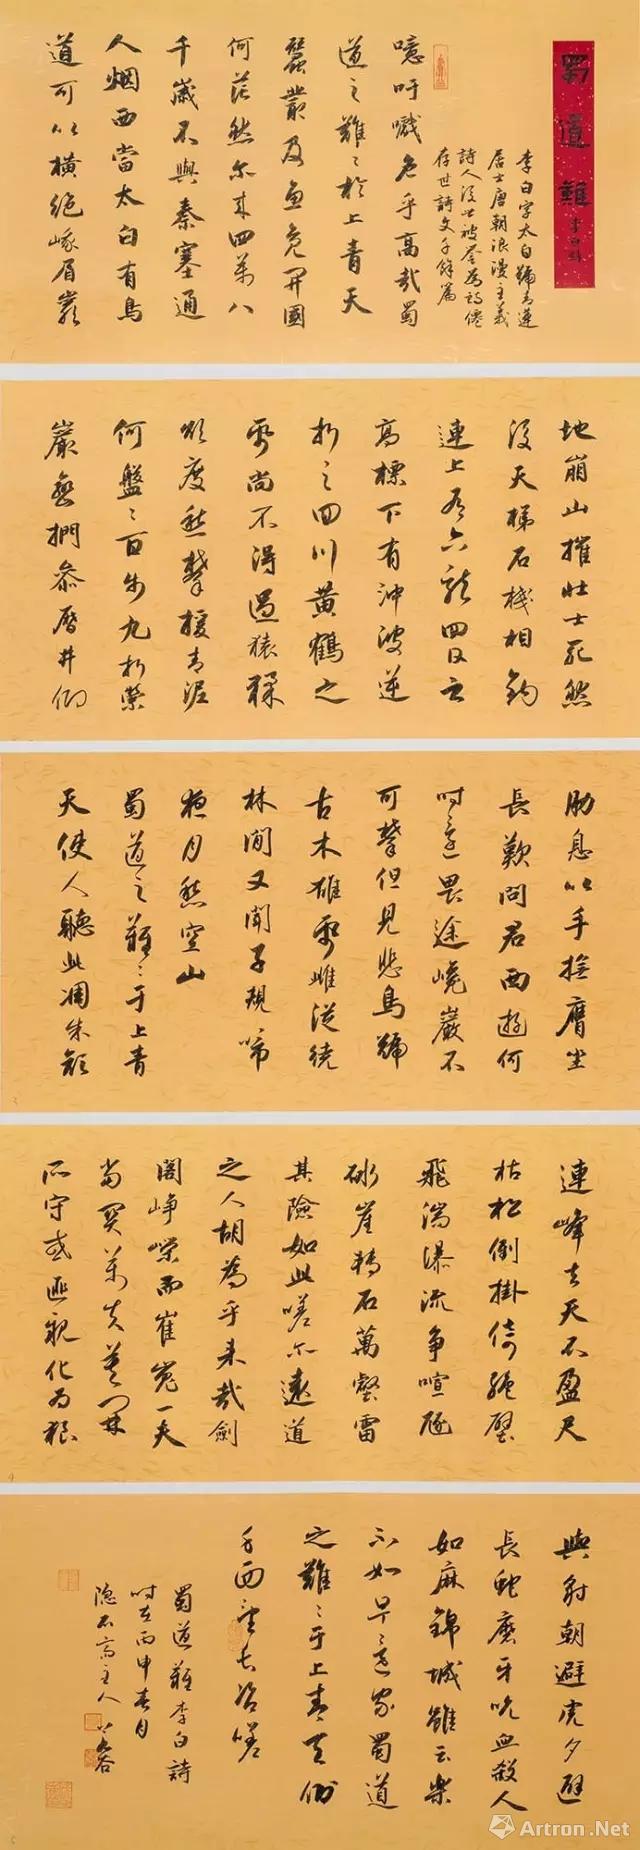 蜀道難
李白詩
李白字太白號青蓮
居士唐朝浪漫主義
詩人後世被譽為詩僊
存世詩文千餘篇
噫吁嚱危乎高哉蜀
道之難〻於上青天
蠶叢及魚鳧開國
何茫然尔來四萬八
千歲不與秦塞通
人烟西當太白有鳥
道可以橫絕峨眉巔
地崩山摧壯士死然
後天梯石棧相鉤
連上有六龍回日之
高標下有沖波逆
折之回川黃鶴之
飛尚不得過猿猱
欲度愁攀援青泥
何盤〻百步九折縈
巖巒捫參歷井仰
脅息以手撫膺坐
長歎問君西遊何
時還畏途巉巖不
可攀但見悲鳥號
古木雄飛雌從繞
林間又聞子規啼
夜月愁空山
蜀道之難〻于上青
天使人聽此凋朱顏
連峰去天不盈尺
枯松倒掛倚絕壁
飛湍瀑流爭喧豗
砯崖轉石萬壑雷
其險如此嗟尔遠道
之人胡為乎來哉劍
閣崢嶸而崔嵬一夫
當關萬夫莫開
所守或匪親化為狼
與豺朝避虎夕避
長蛇磨牙吮血殺人
如麻錦城雖云樂
不如早〻還家蜀道
之難〻于上青天側
身西望長咨嗟
蜀道難李白詩
時在丙申春月
隐石齋主人
Artron.Net